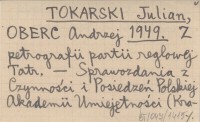 TOKARSKI Julian,
OBERC Andrzej 1949. Z
petrografii partii reglowej
Tatr. — Sprawozdania z
Czynności i Posiedzeń Polskiej
Akademii Umiejętności (Kra-